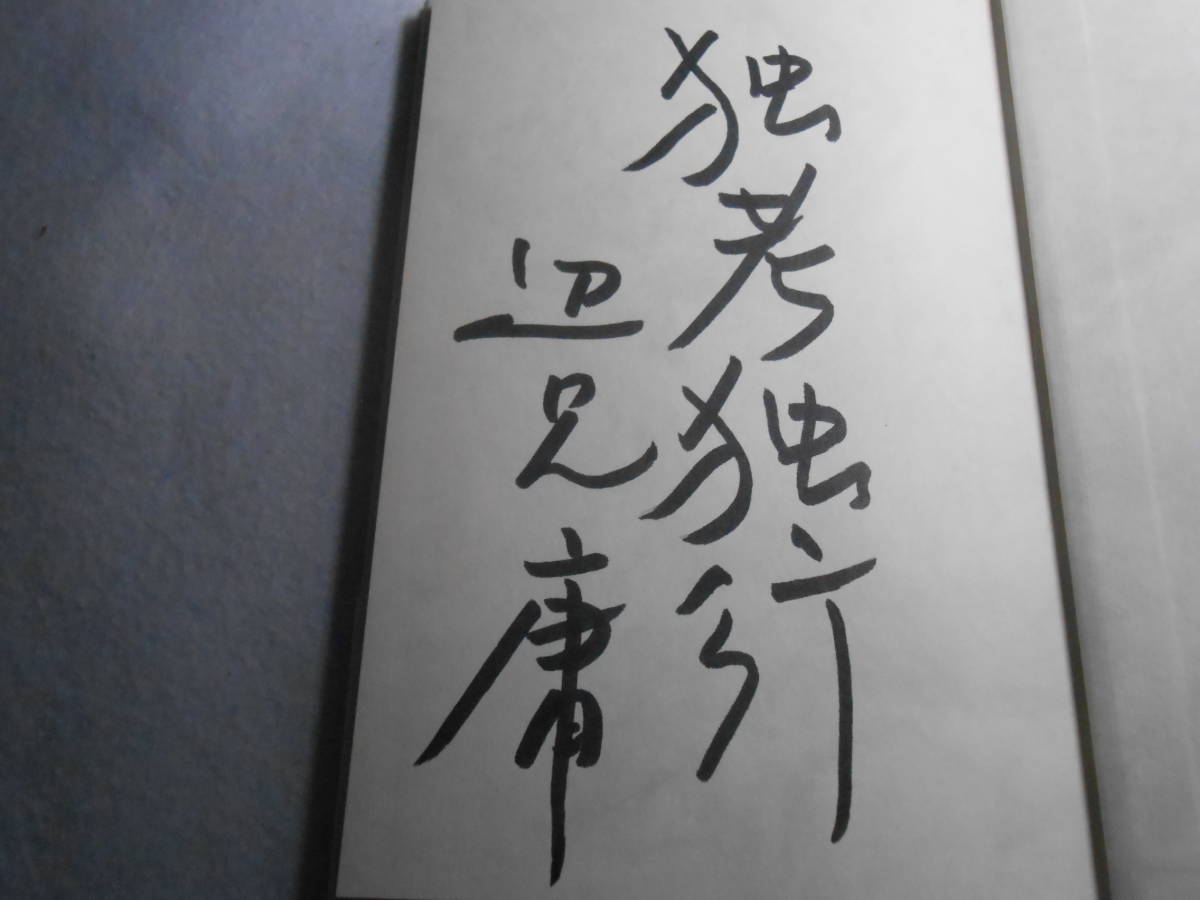 独考独行
辺見庸